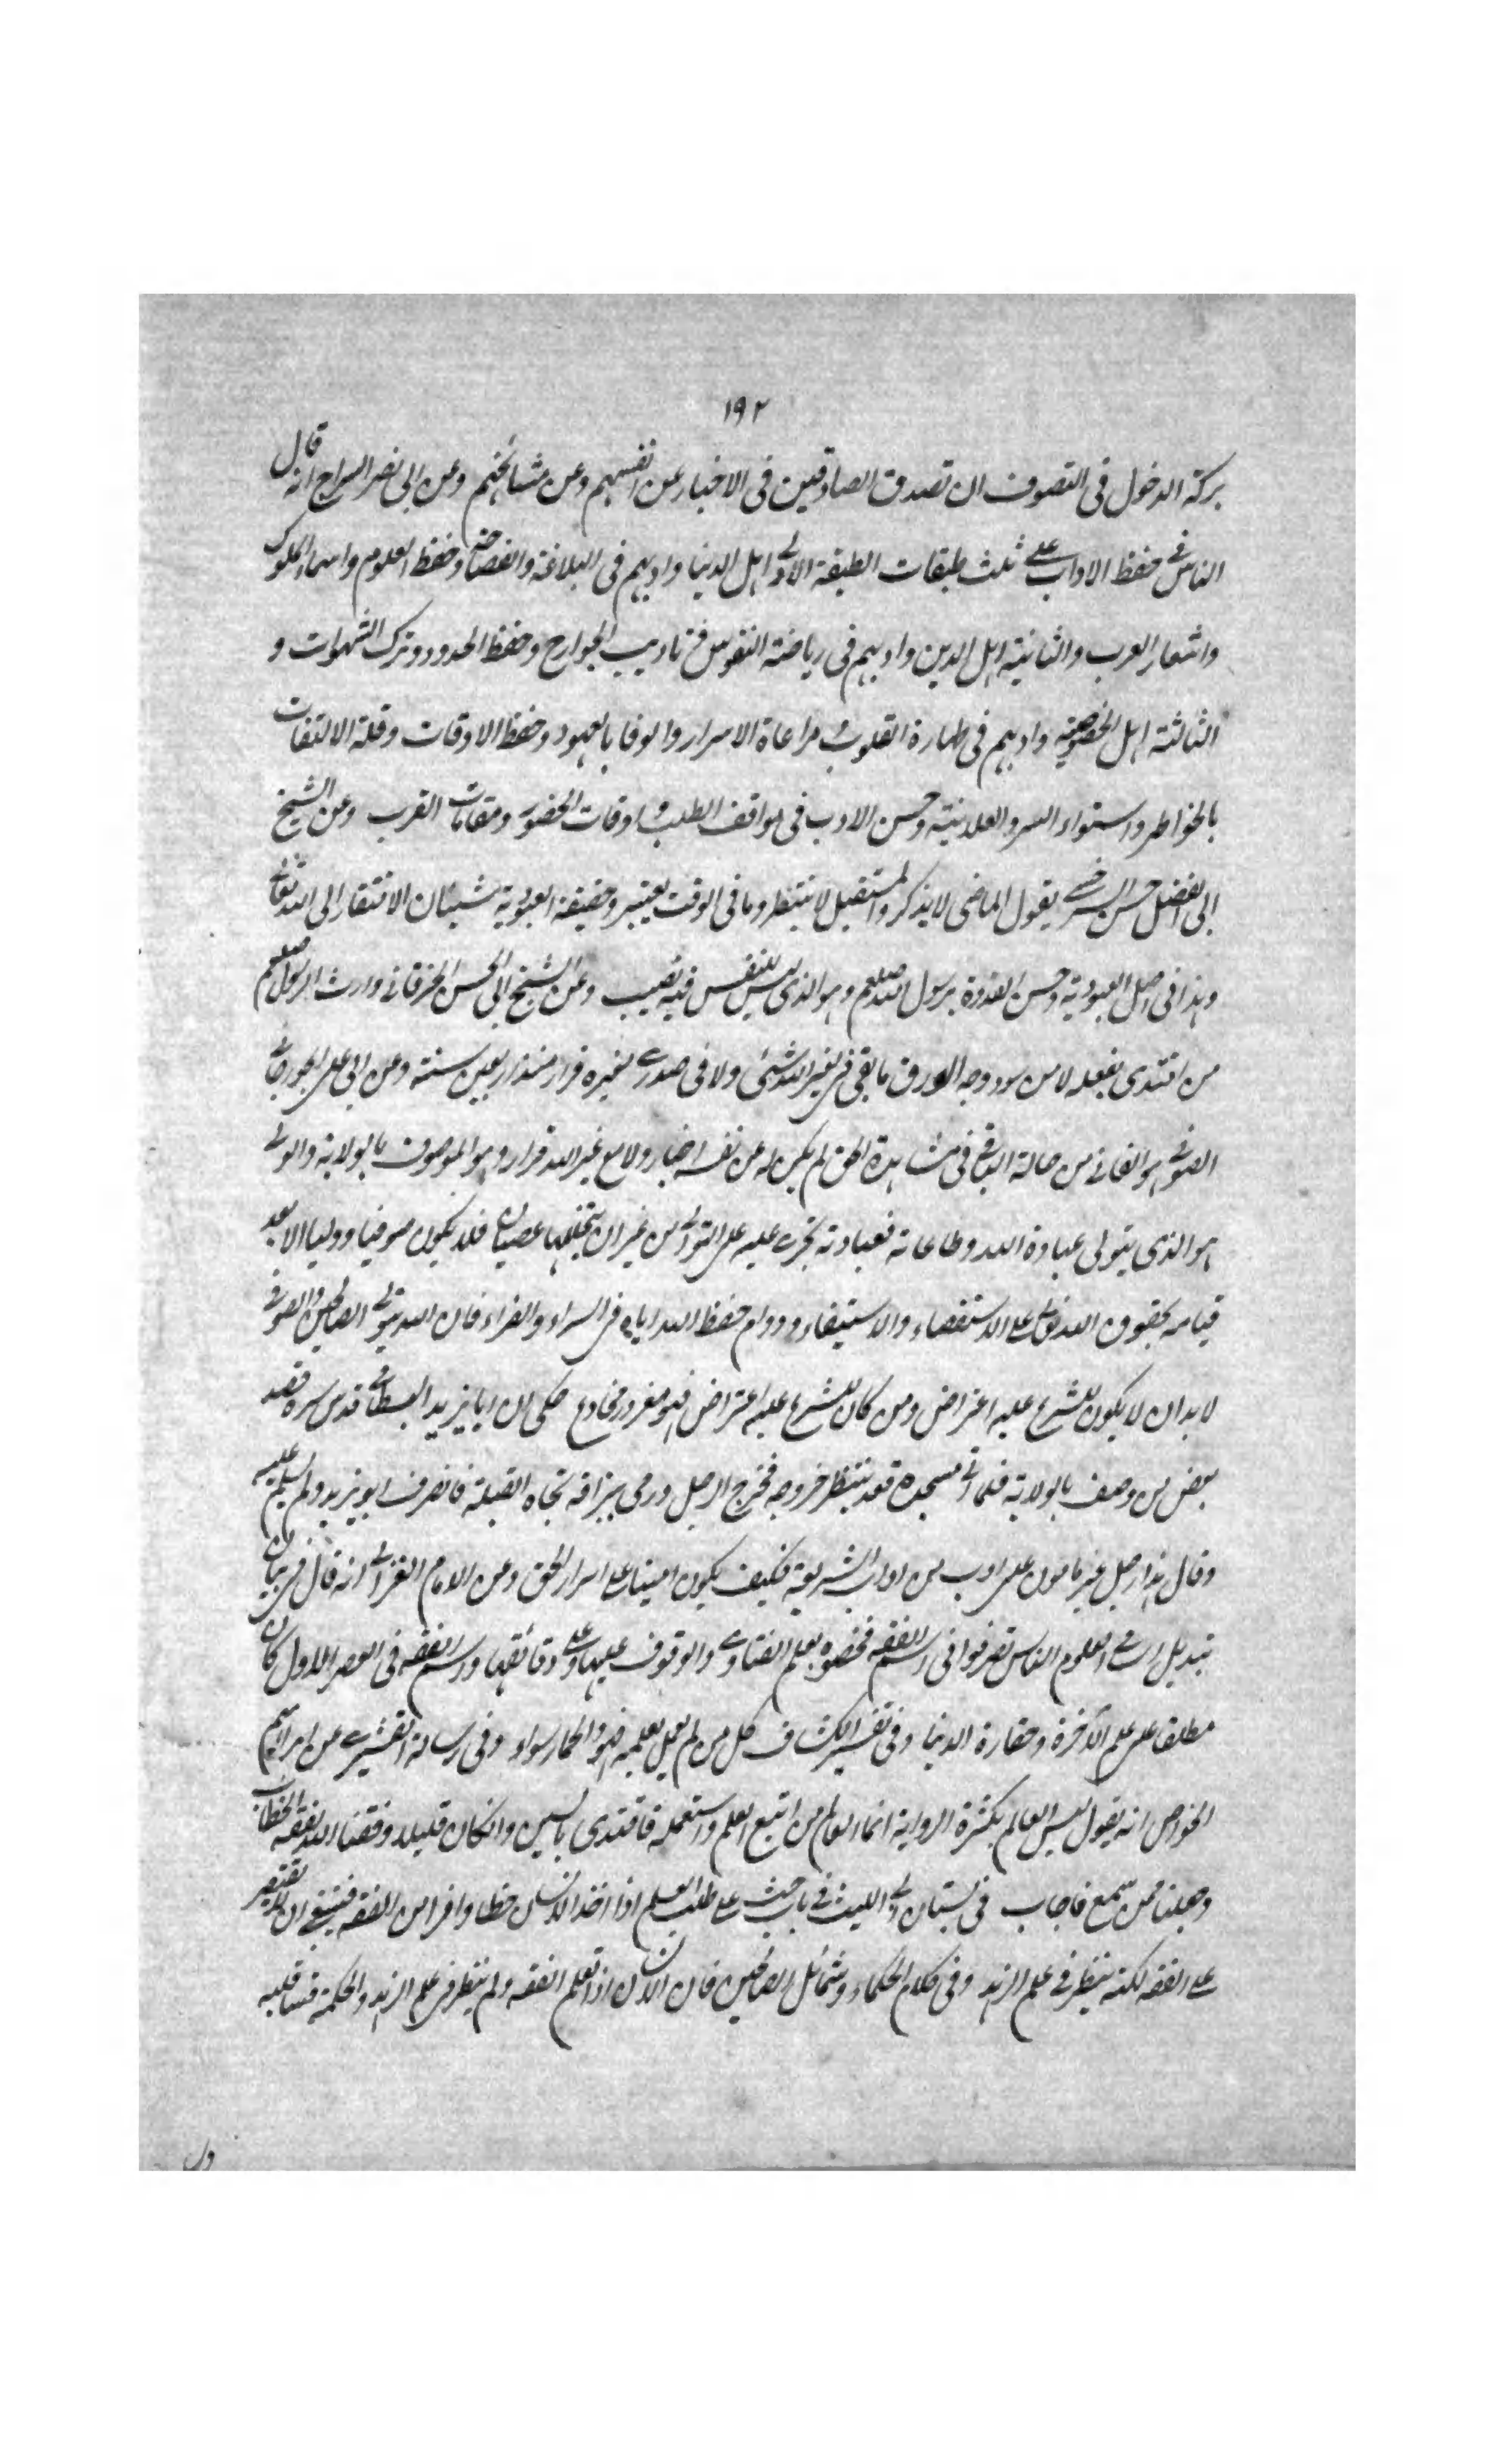 ١٩٢
بركة الدخول فى التصوف ان تصدق الصادقين فى الاخبار عن انفسهم وعن مشائخهم وعن ابى نصر السراج انه قال
الناس فى حفظ الاداب على ثلث طبقات الطبقة الاولى اهل الدنيا وادبهم فى البلاغة والفصاحة وحفظ العلوم واسماء الملوك
واشعار العرب والثانية اهل الدين وادبهم فى رياضة النفوس فى تاديب الجوارح وحفظ الحدود وترك الشهوات و
الثالثة اهل الخصوصية وادبهم فى طهارة القلوب و مراعاة الاسرار والوفا بالعهود وحفظ الاوقات وقلة الالتفات
بالخواطر واستواء السر والعلانية وحسن الادب فى مواقف الطلب و اوقات الحضور ومقامات القرب وعن الشيخ
ابى الفضل حسن السرخسى يقول الماضى لا يذكر والمستقبل لا ينتظر وما فى الوقت يعتبر وحقيقة العبودية شيئان الافتقار الى الله تعالى
وهذا فى اصل العبودية وحسن القدوة برسول الله صلعم وهو الذى ليس للنفس فيه نصيب وعن الشيخ ابى الحسن الخرقانى وارث الرسول صلعم
من اقتدى بفعله لا من سود وجه الورق ما بقى فى لغير الله شئى ولا فى صدرى لغيره قرار منذ اربعين سنة وعن ابى على الجورجانى
الصوفى هو الفانى من حالة الباقى فى مشاهدة الحق لم يكن له عن نفسه اخبار ولا مع غير الله قرار وهو الموصوف بالولاية والولى
هو الذى يتولى عبادة الله وطاعاته فعبادته تجرى عليه على التوالى من غير ان يتخللها عصيان فلا يكون صوفيا ووليا الا بعد
قيامه بحقوق الله تعالى على الاستقصاء والاستيفاء ودوام حفظ الله اياه فى السراء والضراء فان الله يتولى الصالحين والصوفى
لا بد ان لا يكون للشرع عليه اعتراض ومن كان للشرع عليه اعتراض فهو مغرور مخادع حكى ان ابا يزيد البسطامى قدس سره قصد
بعض من وصف بالولاية فلما اتى مسجده قعد ينتظر خروجه فخرج الرجل ورمى ببزاقه تجاه القبلة فانصرف ابو يزيد ولم يسلم عليه
وقال هذا رجل غير مامون على ادب من اداب الشريعة فكيف يكون امينا على اسرار الحق وعن الامام الغزالى انه قال فى بيان
تبديل اسامى العلوم الناس تصرفوا فى اسم الفقه فخصوه بعلم الفتاوى والوقوف عليها وعلى دقائقها واسم الفقه فى العصر الاول كان
مطلقا على علم الآخرة وحقارة الدنيا وفى تفسير الكشاف كل من لم يعمل بعلمه فهو والحمار سواء وفى رسالة القشيرى عن ابراهيم
الخواص انه يقول ليس العالم بكثرة الرواية انما العالم من اتبع العلم واستعمله فاقتدى بالسنن وان كان قليلا وفقنا الله لفقه الخطاب
وجعلنا ممن سمع فاجاب فى بستان ابى الليث فى باب حث على طلب العلم اذا اخذ الانسان حظا وافرا من الفقه فينبغى ان لا يقتصر
على الفقه لكنه ينظر فى علم الزهد وفى كلام الحكماء وشمائل الصالحين فان الانسان اذا تعلم الفقه ولم ينظر فى علم الزهد والحكمة قسا قلبه